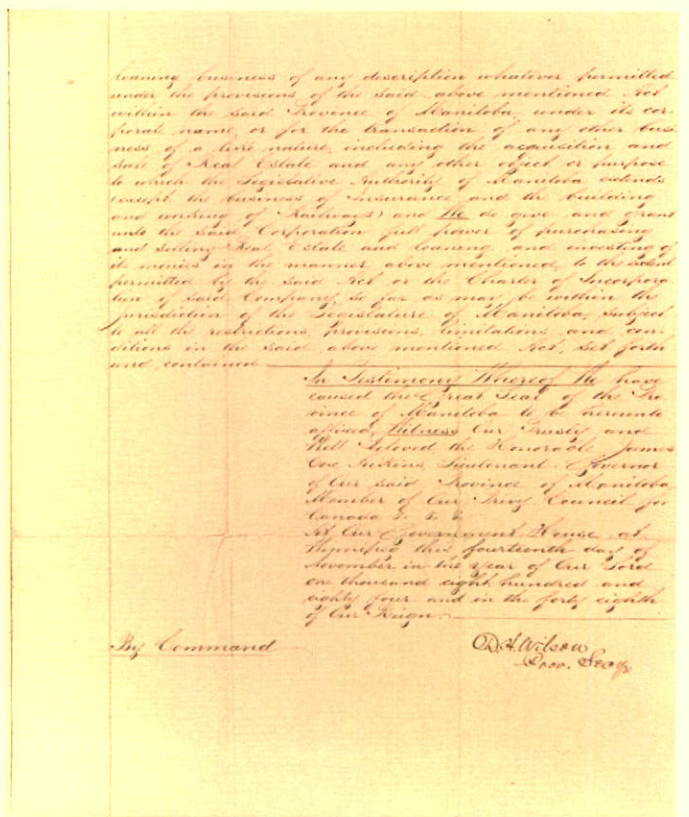 loaning business of any description whatever permitted
under the provisions of the said above mentioned Act
within the said Province of Manitoba, under its cor-
porate name, or for the transaction of any other busi
ness of a like nature, including the acquisition and
sale of Real Estate and any other object or purpose
to which the Legislative Authority of Manitoba extends
(except the business of Insurance and the building
and working of Railways) and We do give and grant
unto the said Corporation full power of purchasing
and selling Real Estate and loaning and investing of
its monies in the manner above mentioned, to the extent
permitted by the said Act or the Charter of Incorpora
tion of said Company, so far as may be within the
jurisdiction of the Legislature of Manitoba, subject
to all the restrictions, provisions, limitations and con-
ditions in the said above mentioned Act, set forth
and contained
In Testimony Whereof We have
caused the Great Seal of the Pro
vince of Manitoba to be hereunto
affixed, Witness Our Trusty and
Well Beloved the Honorable James
Cox Aikins, Lieutenant Governor
of Our said Province of Manitoba
Member of Our Privy Council for
Canada &. &. &
At Our Government House at
Winnipeg this fourteenth day of
November in the year of Our Lord
one thousand eight hundred and
eighty four and in the forty eighth
of Our Reign.
By Command
D.H. Wilson
Prov. Secy